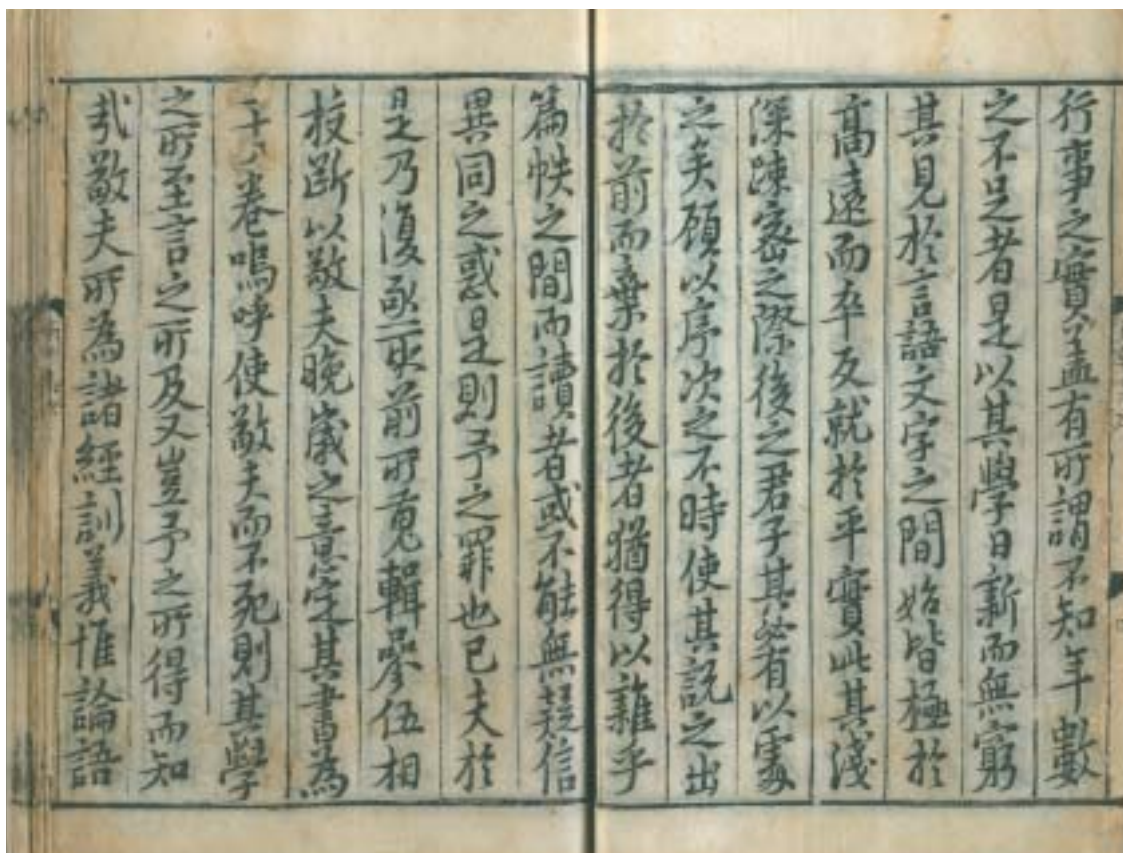 行事之實盖有所謂不知年數
之不足者是以其學日新而無窮
其見於言語文字之間始皆極於
高遠而卒反就於平實此其淺
深踈宻之際後之君子其必有以處
之矣顧以序次之不時使其說之出
於前而棄於後者猶得以雜乎
篇帙之間而讀者或不能無疑信
異同之惑是則予之罪也已夫於
是乃復亟取前所蒐輯參伍相
挍斷以敬夫晚歲之意定其書爲
卷嗚呼使敬夫而不死則其學
之所至言之所及又豈予之所得而知
㢤敬夫所爲諸經訓義惟論語